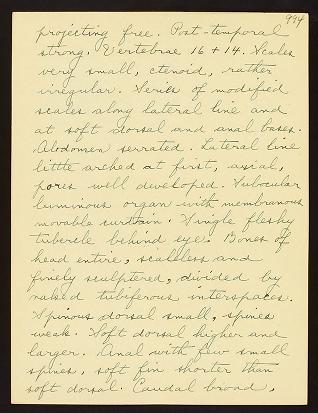 994
projecting free. Post-temporal
strong. Vertebrae 16 + 14. Scales
very small, ctenoid, rather
irregular. Series of modified
scales along lateral line and
at soft dorsal and anal bases.
Abdomen serrated. Lateral line
little arched at first, axial,
pores well developed. Subocular
luminous organ with membranous
movable curtain. Single fleshy
tubercle behind eye. Bones of
head entire, scaleless and
finely sculptered, divided by
naked tubiferous interspaces.
Spinous dorsal small, spines
weak. Soft dorsal higher and
larger. Anal with few small
spines, soft fin shorter than
soft dorsal. Caudal broad,